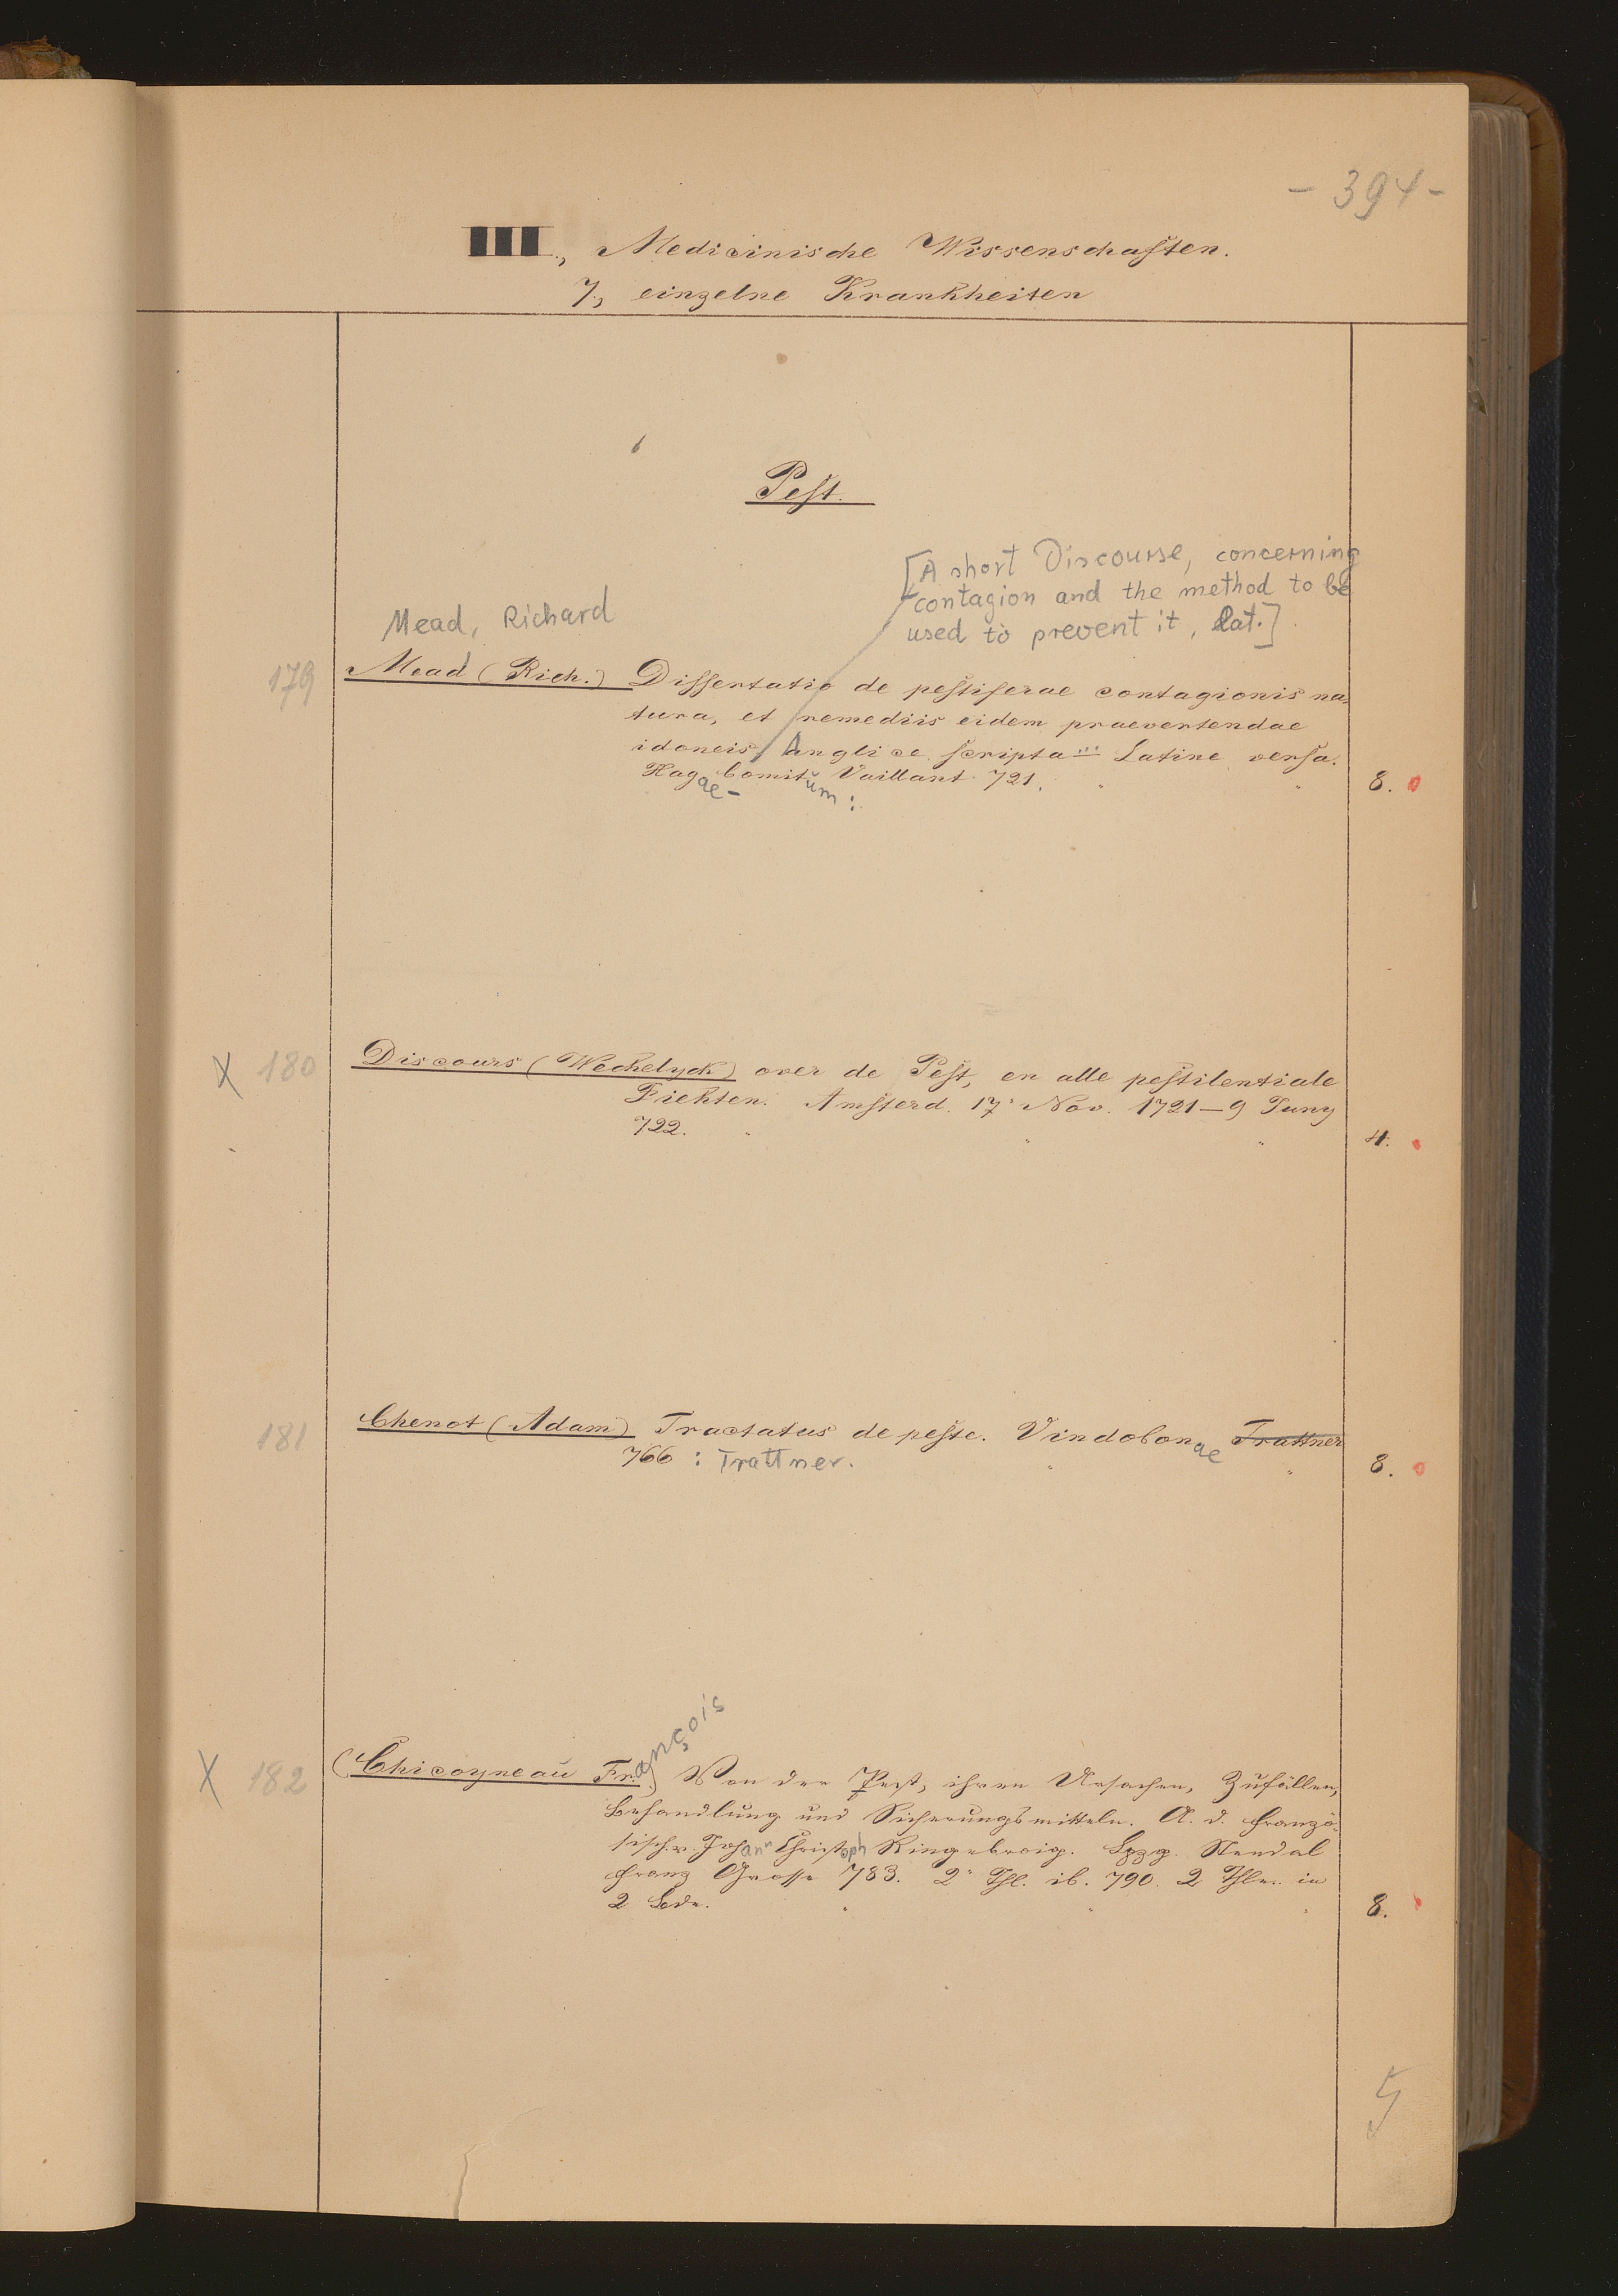 - 394 -
III., Medicinische Wissenschaften.
7., einzelne Krankheiten
Pest.
[A short Discourse, concerning
contagion and the method to be
used to prevent it, Lat.]
Mead, Richard
179 Mead (Rich.) Dissertatio de pestiferae contagionis na-
tura, et remediis eidem praevertendae
idoneis Anglice scripta ... Latine versa.
Hagae-Comitum: Vaillant 721. 8.
X 180 Discours (Weckelyck) over de Pest, en alle pestilentiale
Ziekten. Amsterd. 17. Nov. 1721 — 9 Juny
722. 4.
181 Chenot (Adam) Tractatus de peste. Vindobonae Trattner
766 : Trattner. 8.
X 182 (Chicoyneau François) Von der Pest, ihren Ursachen, Zufällen,
Behandlung und Sicherungsmitteln. A. d. Franzö-
sisch. v. Johann Christoph Ringebroig. Lpzg. Stendal
Franz Grosse 783. 2r Thl. ib. 790. 2 Thle. in
2 Bdn. 8.
5